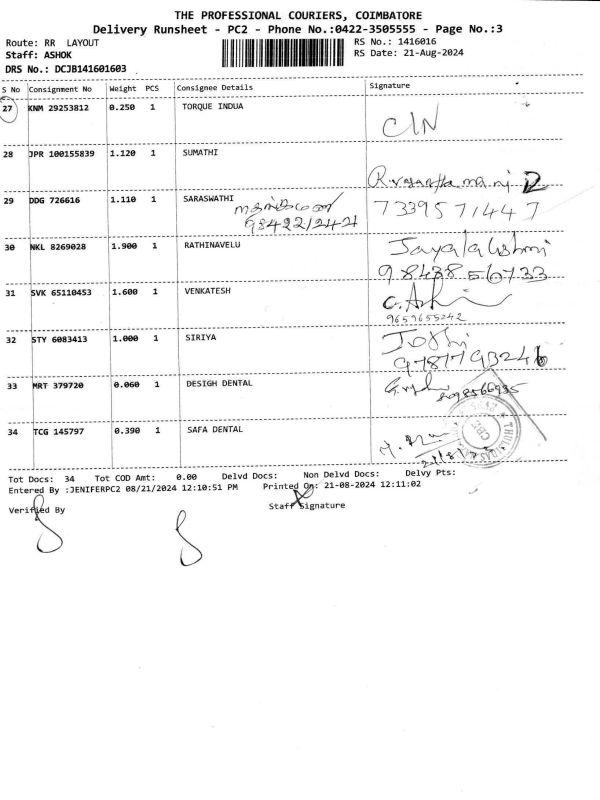 THE PROFESSIONAL COURIERS, COIMBATORE
Delivery Runsheet - PC2 - Phone No.:0422-3505555 - Page No.:3
Route: RR LAYOUT
RS No.: 1416016
Staff: ASHOK
RS Date: 21-Aug-2024
DRS No.: DCJB141601603
S No Consignment No Weight PCS Consignee Details Signature
27 KNM 29253812 0.250 1 TORQUE INDUA
CIN
28 JPR 100155839 1.120 1 SUMATHI
29 DDG 726616 1.110 1 SARASWATHI
7339571447
9842212421
30 NKL 8269028 1.900 1 RATHINAVELU Jayalakshmi
9843856733
31 SVK 65110453 1.600 1 VENKATESH
9659655242
32 STY 6083413 1.000 1 SIRIYA Jothi
9787793246
33 MRT 379720 0.060 1 DESIGH DENTAL
8098566935
34 TCG 145797 0.390 1 SAFA DENTAL
CBE
Tot Docs: 34 Tot COD Amt: 0.00 Delvd Docs: Non Delvd Docs: Delvy Pts:
Entered By :JENIFERPC2 08/21/2024 12:10:51 PM Printed On: 21-08-2024 12:11:02
Verified By Staff Signature